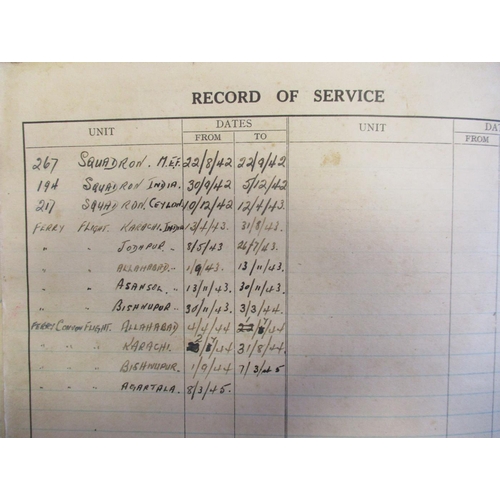 RECORD OF SERVICE
UNIT DATES UNIT DA
FROM TO FROM
267 SQUADRON. M.E.F. 22/8/42 22/9/42
194 SQUADRON INDIA. 30/9/42 5/12/42
217 SQUADRON. CEYLON. 10/12/42 12/4/43.
FERRY FLIGHT. KARACHI. INDIA 13/4/43. 31/8/43.
" " JODHPUR " 8/5/43 26/7/43.
" " ALLAHABAD " 1/9/43. 13/11/43.
" " ASANSOL. " 13/11/43. 30/11/43.
" " BISHNUPUR " 30/11/43. 3/3/44.
FERRY FLIGHT. ALLAHABAD 4/4/44
" " " KARACHI. 31/8/44
" " " BISHNUPUR. 1/9/44 7/3/45
" " " AGARTALA. 8/3/45.